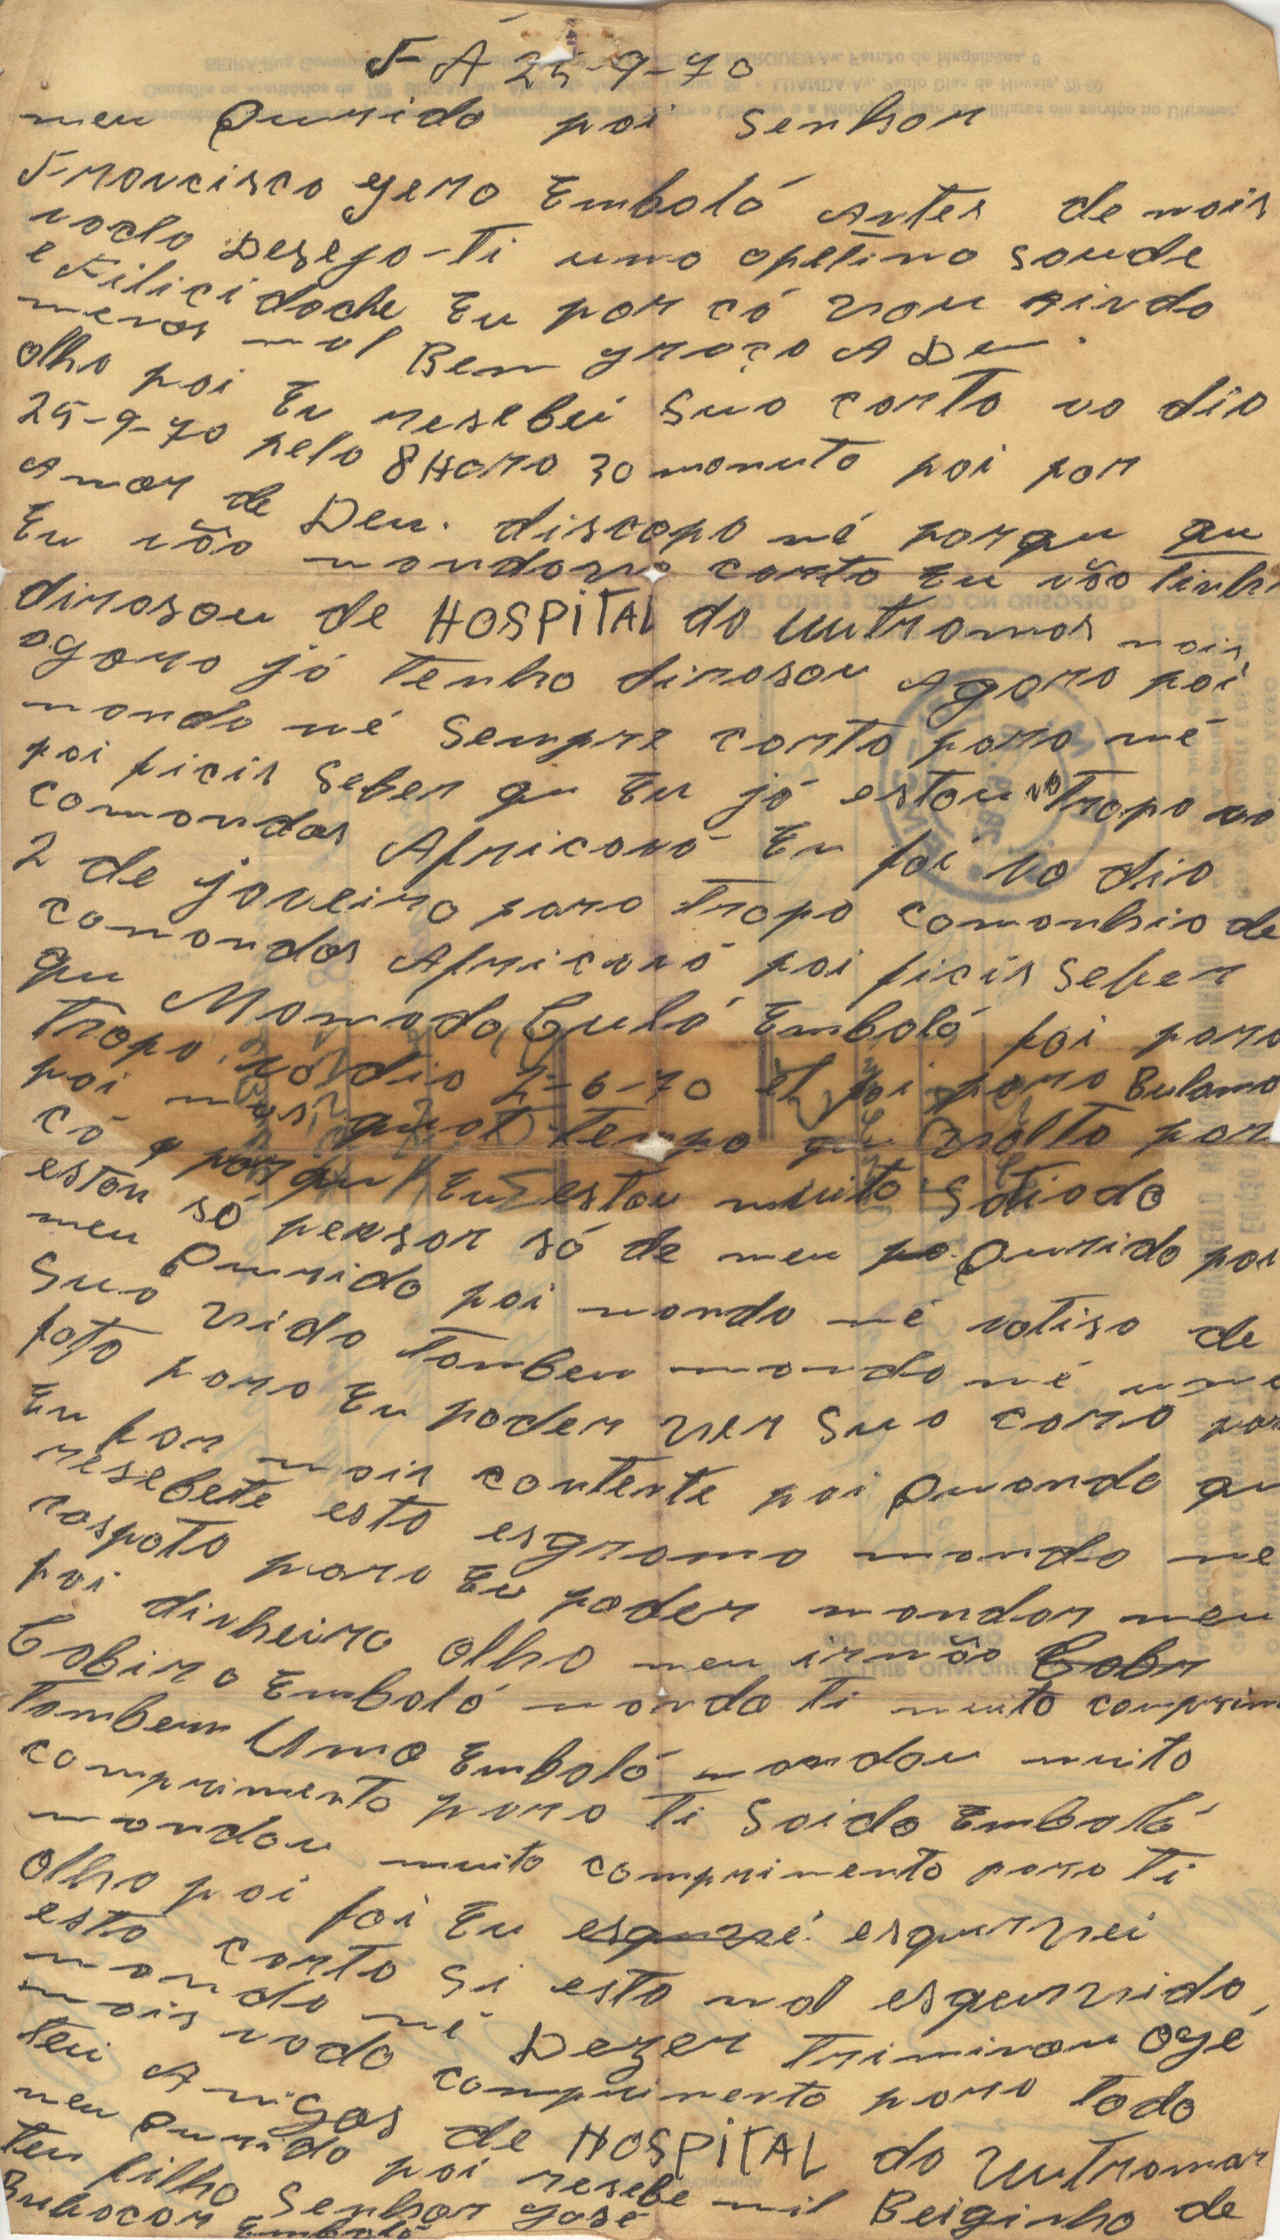 FÁ 25-9-70
meu Qurido pai senhor
Francisco gero Embaló Antes de mais
nada Desejo-Ti uma opetina saude
e Filicidade Eu por cá vou sindo
menos mal Bem graça A Deu.
olha pai Eu resebei sua carta no dia
25-9-70 pela 8 Hora 30 monuto pai por
Amor de Deu. discopa mé porqu qu
Eu não mandava carta Eu não tinha
dirasou de HOSPITAL do Uutramas mais
agora já Tenho dirasou Agora pai
manda mé sempre carta para mé
pai ficis seber qu Eu já estou na Tropa no
comandos Africana Eu foi no dia
2 de janeiro para Tropa comanhia de
comandos Africaná pai ficis seber
qu Mamada Culá Embaló foi para
Tropa no dia 2-6-70 el foi para Bulama
pai mas quat Tempo qu volta par
cá porqu Eu estou muito sdiado
estou só pensar só de meu Qurido pai
meu Qurido pai manda mé notisa de
sua vida Tanben manda mé uma
foto para Eu poder ver sua cara par
Eu for mais contente pai Quando qu
resebete esta esgrama manda me
raspota para Eu poder mandar meu
pai dinheiro olha meu irmão Cabr
Cabira Embaló manda Ti muito comprim
Tambem Uma Embaló mandou muito
comprimento para Ti Saido Embaló
mandou muito comprimento para Ti
olha pai foi Eu esqurvé esqurvei
esta carta si esta mal esqurvida,
manda mé Dezer Triminou ogé
mais nada comprimento para Toda
teu Amigos de HOSPITAL do Uutramar
meu Qurido pai resebe mil Beiginho de
Teu filho Senhor José
Embaló